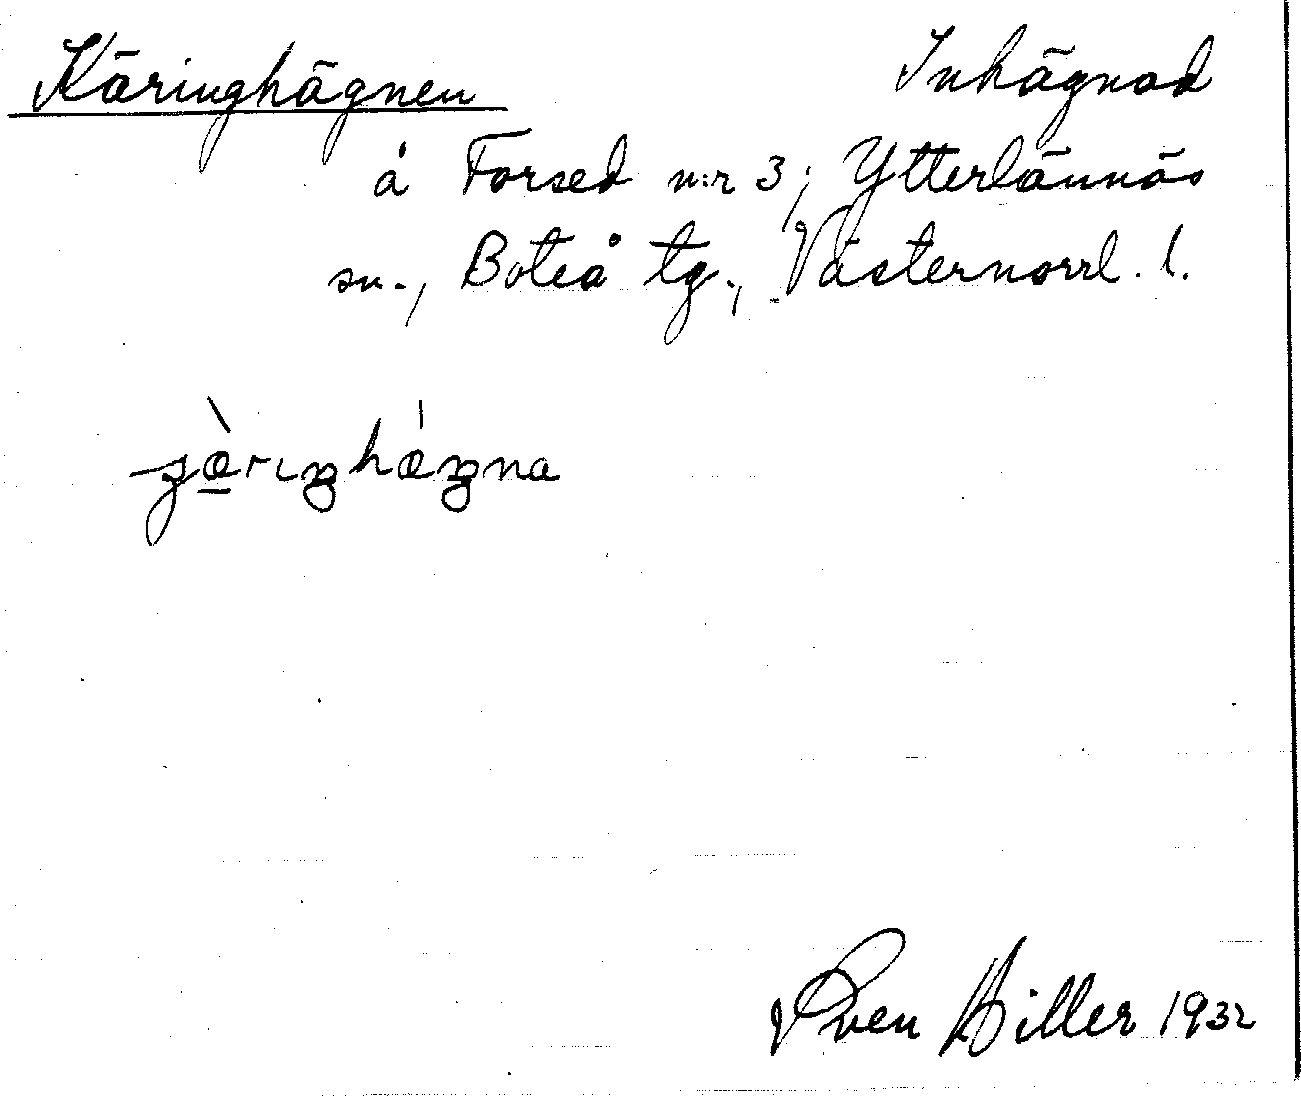 Käringhägnen Inhägnad
å Forsed n:r 3; Ytterlännäs
sn., Boteå tg., Västernorrl. l.
Sven Hiller 1932